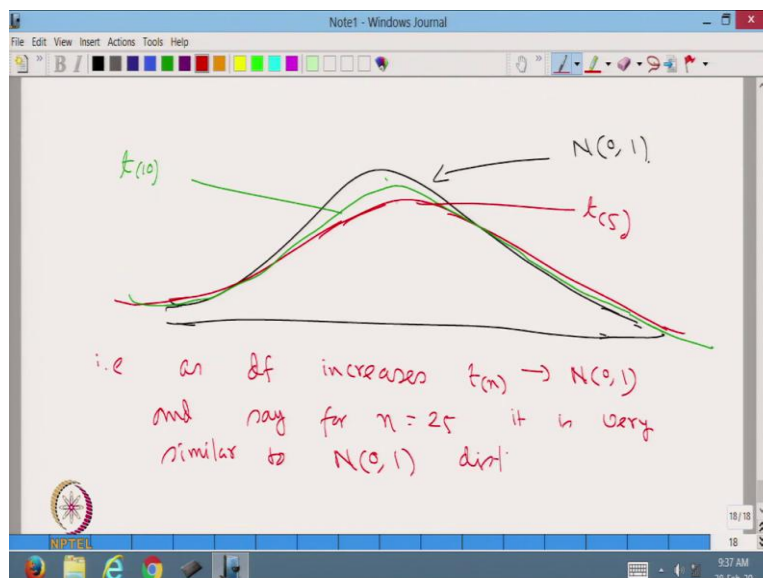 Note1 - Windows Journal
File Edit View Insert Actions Tools Help
B I
N(0, 1)
t(10)
t(5)
i.e as df increases t(n) → N(0, 1)
and say for n = 25 it is very
similar to N(0, 1) dist
NPTEL
18/18
18
9:37 AM